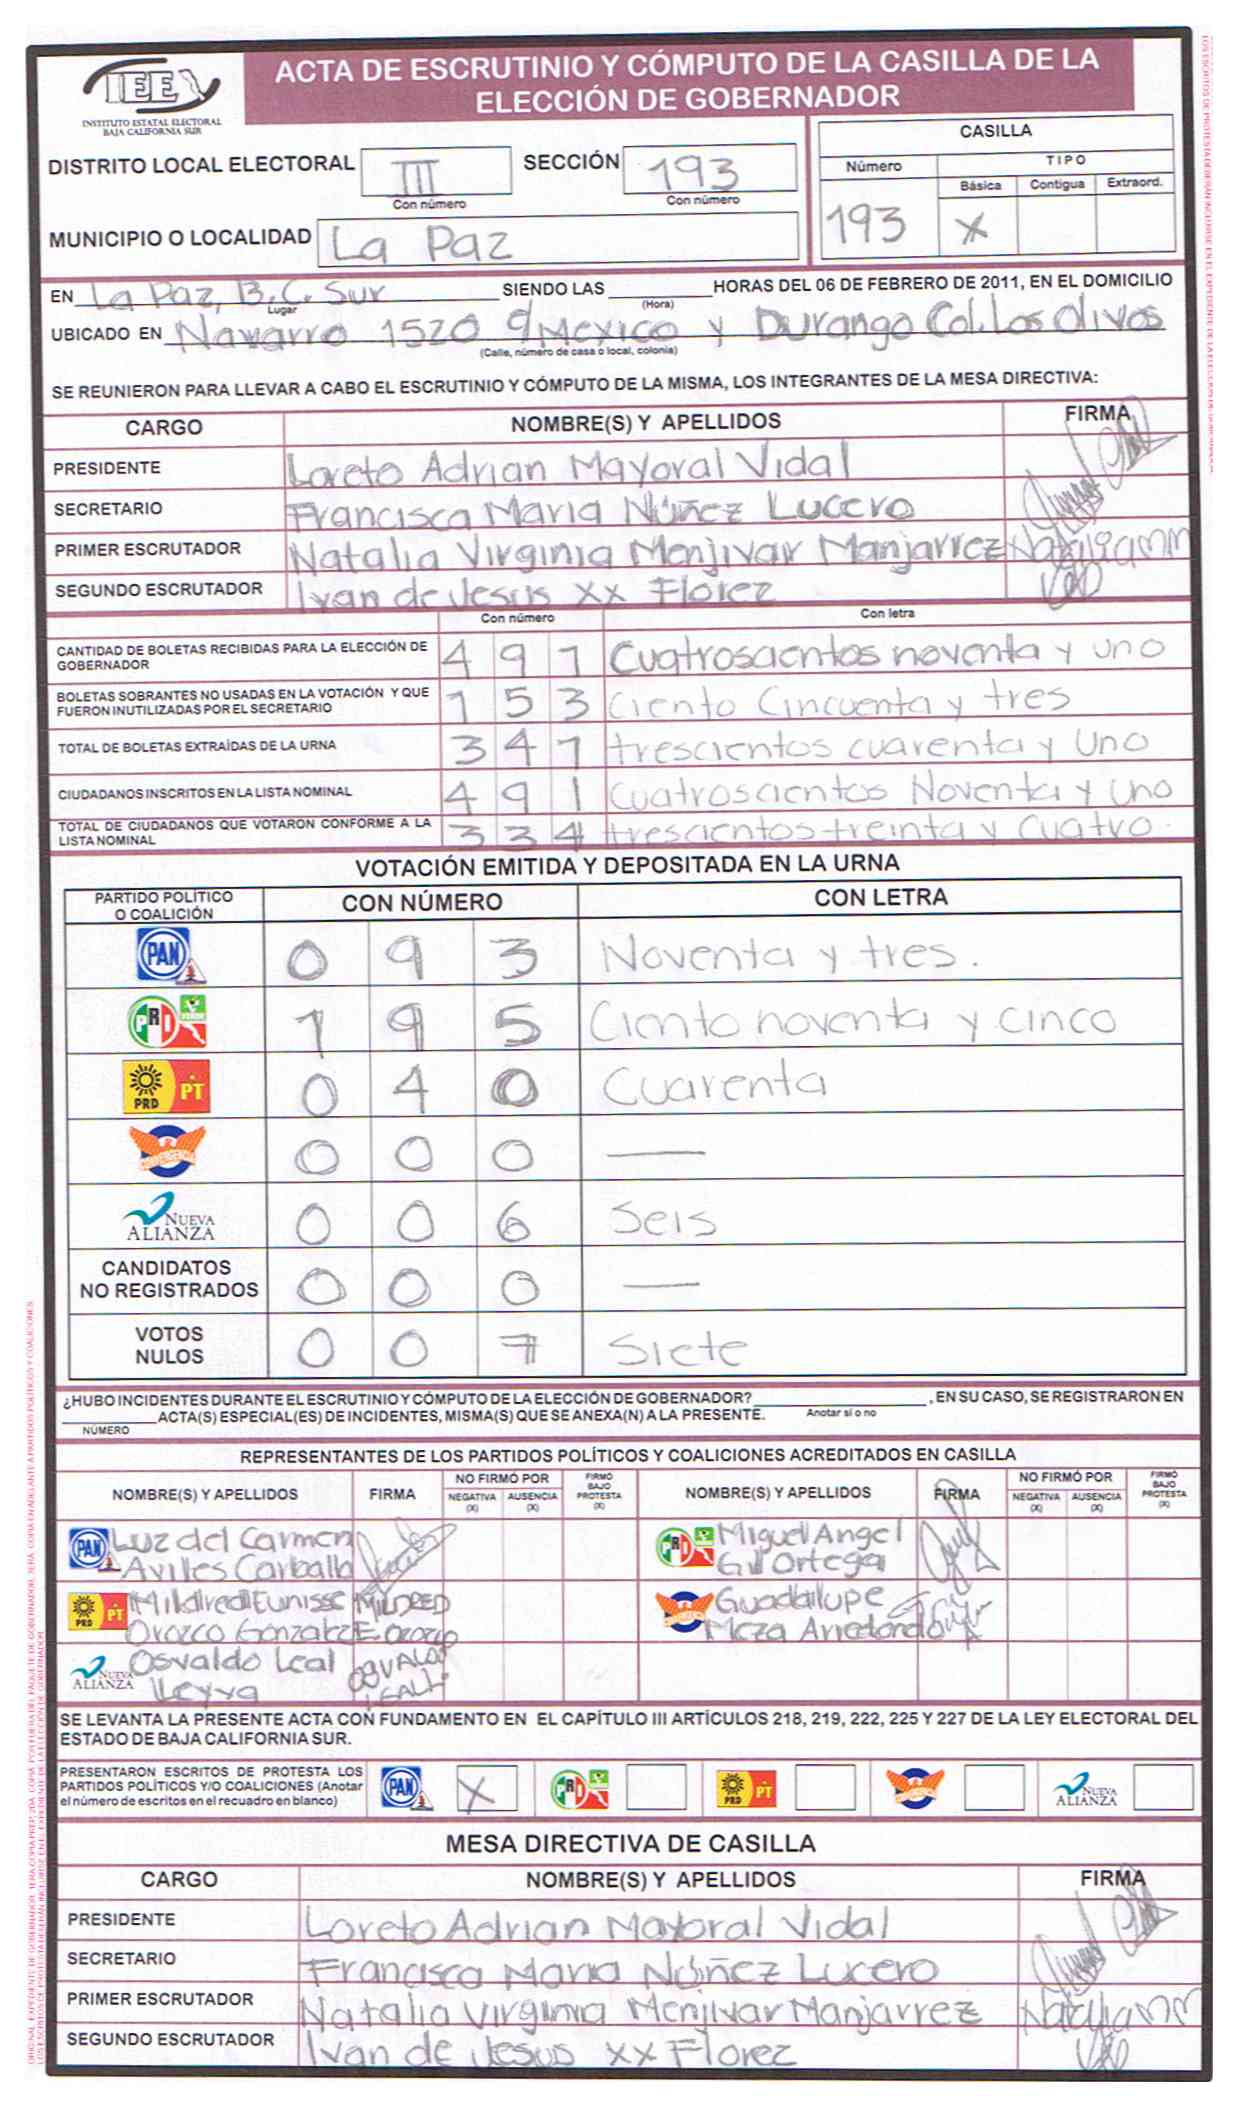 ACTA DE ESCRUTINIO Y CÓMPUTO DE LA CASILLA DE LA
ELECCIÓN DE GOBERNADOR
IEE
INSTITUTO ESTATAL ELECTORAL
BAJA CALIFORNIA SUR
DISTRITO LOCAL ELECTORAL III SECCIÓN 193
Con número Con número
MUNICIPIO O LOCALIDAD La Paz
CASILLA
Número TIPO
Básica Contigua Extraord.
193 X
EN La Paz, B.C. Sur SIENDO LAS HORAS DEL 06 DE FEBRERO DE 2011, EN EL DOMICILIO
Lugar (Hora)
UBICADO EN Navarro 1520 e/ Mexico y Durango Col. Los Olivos
(Calle, número de casa o local, colonia)
SE REUNIERON PARA LLEVAR A CABO EL ESCRUTINIO Y CÓMPUTO DE LA MISMA, LOS INTEGRANTES DE LA MESA DIRECTIVA:
CARGO NOMBRE(S) Y APELLIDOS FIRMA
PRESIDENTE Loreto Adrian Mayoral Vidal
SECRETARIO Francisca Maria Núñez Lucero
PRIMER ESCRUTADOR Natalia Virginia Menjivar Manjarrez
SEGUNDO ESCRUTADOR Ivan de Jesus xx Florez
Con número Con letra
CANTIDAD DE BOLETAS RECIBIDAS PARA LA ELECCIÓN DE
GOBERNADOR 4 9 1 Cuatroscientos noventa y uno
BOLETAS SOBRANTES NO USADAS EN LA VOTACIÓN Y QUE
FUERON INUTILIZADAS POR EL SECRETARIO 1 5 3 Ciento Cincuenta y tres
TOTAL DE BOLETAS EXTRAÍDAS DE LA URNA 3 4 1 trescientos cuarenta y Uno
CIUDADANOS INSCRITOS EN LA LISTA NOMINAL 4 9 1 Cuatroscientos Noventa y uno
TOTAL DE CIUDADANOS QUE VOTARON CONFORME A LA
LISTA NOMINAL 3 3 4 trescientos treinta y cuatro.
VOTACIÓN EMITIDA Y DEPOSITADA EN LA URNA
PARTIDO POLÍTICO
O COALICIÓN CON NÚMERO CON LETRA
PAN 0 9 3 Noventa y tres.
PRI VERDE 1 9 5 Ciento noventa y cinco
PRD PT 0 4 0 Cuarenta
CONVERGENCIA 0 0 0 —
NUEVA ALIANZA 0 0 6 Seis
CANDIDATOS
NO REGISTRADOS 0 0 0 —
VOTOS
NULOS 0 0 7 Siete
¿HUBO INCIDENTES DURANTE EL ESCRUTINIO Y CÓMPUTO DE LA ELECCIÓN DE GOBERNADOR? , EN SU CASO, SE REGISTRARON EN
ACTA(S) ESPECIAL(ES) DE INCIDENTES, MISMA(S) QUE SE ANEXA(N) A LA PRESENTE. Anotar si o no
NÚMERO
REPRESENTANTES DE LOS PARTIDOS POLÍTICOS Y COALICIONES ACREDITADOS EN CASILLA
NOMBRE(S) Y APELLIDOS FIRMA NO FIRMÓ POR NEGATIVA (X) AUSENCIA (X) FIRMÓ BAJO PROTESTA (X) NOMBRE(S) Y APELLIDOS FIRMA NO FIRMÓ POR NEGATIVA (X) AUSENCIA (X) FIRMÓ BAJO PROTESTA (X)
PAN Luz del Carmen
Aviles Carballo
PRI Miguel Angel
Gil Ortega
PRD PT Mildred Eunisse MILDRED
Orozco Gonzalez E. OROZCO
CONVERGENCIA Guadalupe
Meza Arredondo
NUEVA ALIANZA Osvaldo Leal OSVALDO
Leyva LEAL
SE LEVANTA LA PRESENTE ACTA CON FUNDAMENTO EN EL CAPÍTULO III ARTÍCULOS 218, 219, 222, 225 Y 227 DE LA LEY ELECTORAL DEL
ESTADO DE BAJA CALIFORNIA SUR.
PRESENTARON ESCRITOS DE PROTESTA LOS
PARTIDOS POLÍTICOS Y/O COALICIONES (Anotar
el número de escritos en el recuadro en blanco)
PAN X PRI PRD PT CONVERGENCIA NUEVA ALIANZA
MESA DIRECTIVA DE CASILLA
CARGO NOMBRE(S) Y APELLIDOS FIRMA
PRESIDENTE Loreto Adrian Mayoral Vidal
SECRETARIO Francisca Maria Núñez Lucero
PRIMER ESCRUTADOR Natalia Virginia Menjivar Manjarrez
SEGUNDO ESCRUTADOR Ivan de Jesus xx Florez